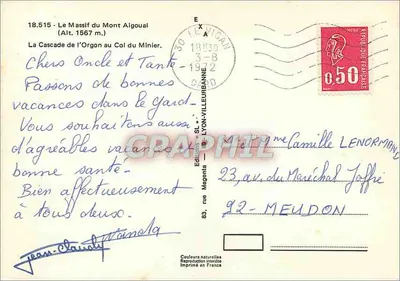 18.515 - Le Massif du Mont Aigoual
(Alt. 1567 m.)
La Cascade de l'Orgon au Col du Minier.
Chers Oncle et Tante
Passons de bonnes
vacances dans le Gard.
Vous souhaitons aussi
d'agréables vacances et
bonne santé.
Bien affectueusement
à tous deux.
Jean-Claude
EXA
83, rue Magenta LYON-VILLEURBANNE
30 LE VIGAN
18H30
3-8
1972
GARD
0,50
Camille LENORMAND
23, av. du Maréchal Joffre
92 - MEUDON
Couleurs naturelles
Reproduction interdite
Imprimé en France
DELCAMPE